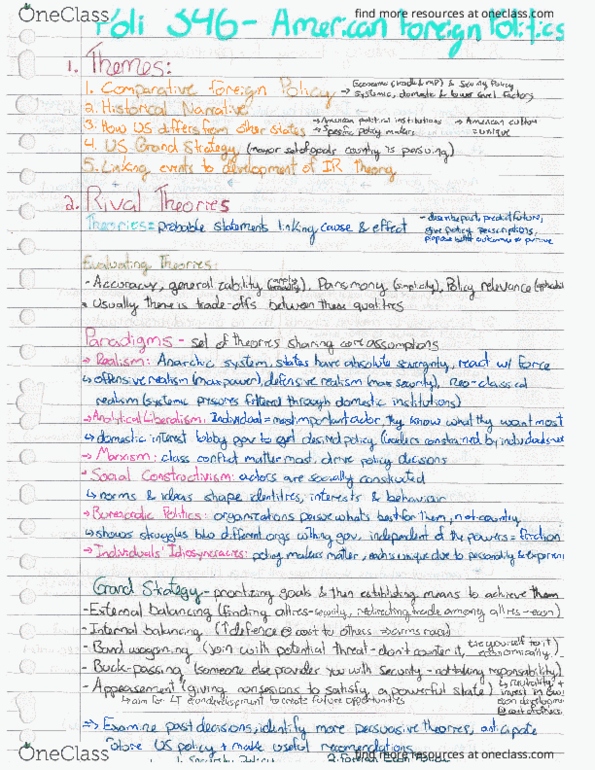 OneClass
find more resources at oneclass.com
Poli 346 - American Foreign Politics
1. Themes:
1. Comparative Foreign Policy → Economic (trade & MP) & Security Policy
→ systemic, domestic & lower level factors
2. Historical Narrative
3. How US differs from other states → American political institutions → American culture
→ Specific policy makers = unique
4. US Grand Strategy (major set of goals country is pursuing)
5. Linking events to development of IR Theory
2. Rival Theories
Theories = probable statements linking cause & effect - describe past, predict future,
give policy perscriptions,
propose best outcomes to pursue
Evaluating Theories:
- Accuracy, generalizability, Parsimony (simplicity), Policy relevance
- Usually there is trade-offs between these qualities
Paradigms - set of theories sharing core assumptions
→ Realism: Anarchic system, states have absolute severignty, react w/ force
↳ offensive realism (max power), defensive realism (max security), neo-classical
realism (systemic presures filtered through domestic institutions)
→ Analytical Liberalism: Individual = most important actor, they know what they want most
↳ domestic interest lobby gov to get desired policy (leaders constrained by individuals
→ Marxism: class conflict matter most, drive policy decisions
→ Social Constructivism: actors are socially constructed
↳ norms & ideas shape identities, interests & behaviour
→ Bureacratic Politics: organizations persue what's best for them, not country
↳ shows struggles b/w different orgs w/ting gov. independent of the powers = friction
→ Individuals' Idiosyncracies: policy makers matter, each is unique due to personality &
Grand Strategy - prioritizing goals & then establishing means to achieve them
- External balancing (finding allies - security, redirecting trade among allies - econ)
- Internal balancing (↑ defence @ cost to others ⇒ arms race)
- Band wagoning (join with potential threat - don't counter it, tie yourself to it economically)
- Buck-passing (someone else provider you with security - not taking responsability)
- Appeasement (giving consesions to satisfy a powerful state)
↳ aim for LT development to create future opportunities
⇒ Examine past decisions, identify more persuasive theories, anticipate
future US policy & make useful recomendations
OneClass
find more resources at oneclass.com